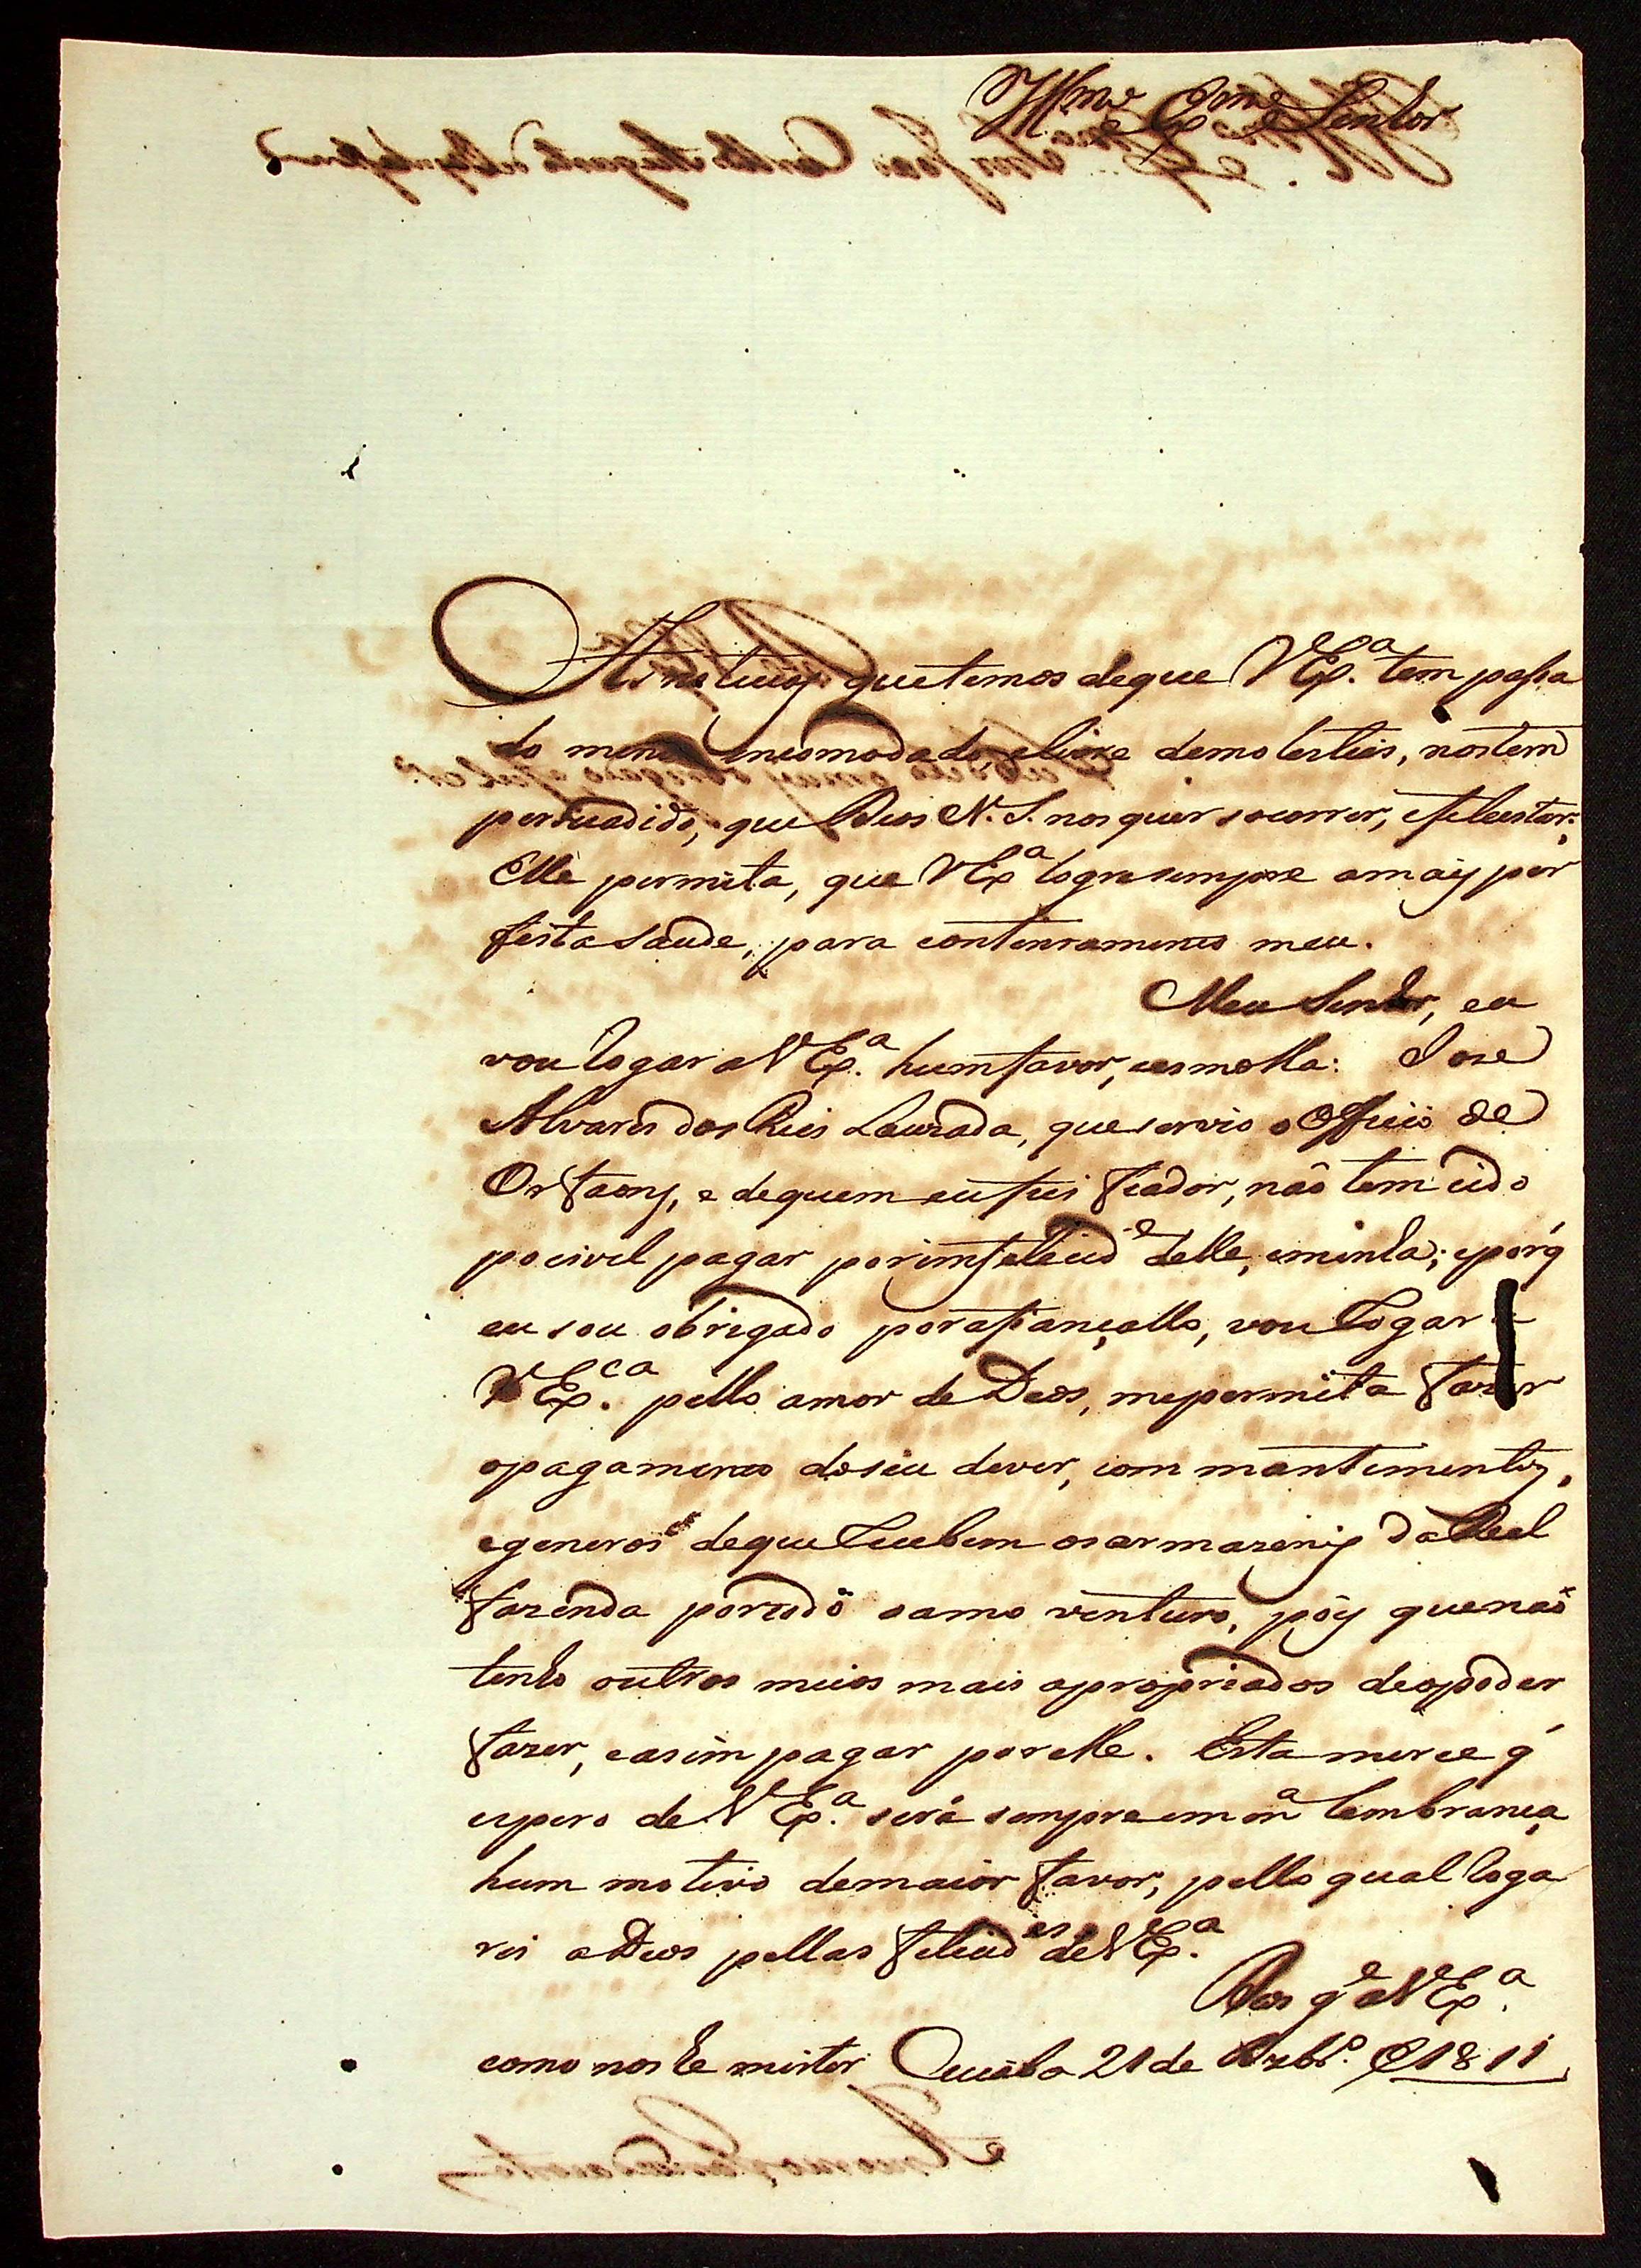 Illmo. e Exmo. Senhor
As noticias que temos de que VExa. tem passa
do menos encomodado, e livre de molestias, nos tem
persuadido, que Deos N. S. nos quer socorrer, e felecitar:
Elle permita, que VExa logre sempre a mais per
feita saude, para contentamento meu.
Meu Senhor, eu
vou Rogar a VExa. hum favor, e esmolla: Jose
Alvares dos Reis Louzada, que servio o Officio de
Orfaons, e de quem eu fui fiador, não tem cido
pocivel pagar por imfelecide delle, e minha; e porq'
eu sou obrigado por afiançallo, vou Rogar a
VExca. pello amor de Deos, me permita fazer
o pagamento do seu dever, com mantimentos,
e generos de que Recebem os armazenis da Real
fazenda por todo o anno venturo, pois que não
tenho outros meios mais apropriados de o poder
fazer, e asim pagar por elle. Esta merce q'
espero de VExa. será sempre em ma lembrança
hum motivo de maior favor, pello qual Roga
rei a Deos pellas felecides de VExa.
Deos ge a VExa.
como nos he mister Cuiaba 21 de Dezbro. @ 1811